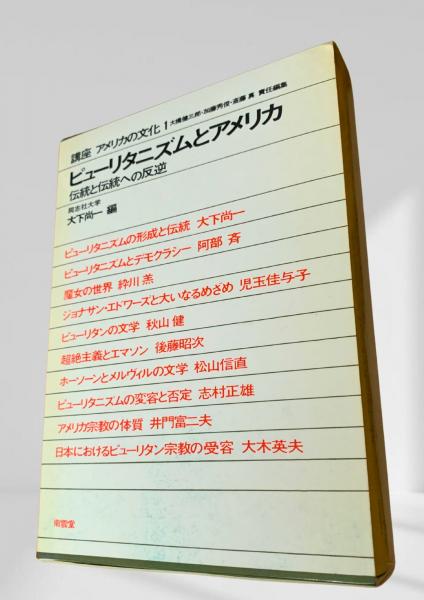 講座 アメリカの文化1 大橋健三郎・加藤秀俊・斎藤眞 責任編集
ピューリタニズムとアメリカ
伝統と伝統への反逆
同志社大学
大下尚一 編
ピューリタニズムの形成と伝統 大下尚一
ピューリタニズムとデモクラシー 阿部 斉
魔女の世界 絈川 羔
ジョナサン・エドワーズと大いなるめざめ 児玉佳与子
ピューリタンの文学 秋山 健
超絶主義とエマソン 後藤昭次
ホーソーンとメルヴィルの文学 松山信直
ピューリタニズムの変容と否定 志村正雄
アメリカ宗教の体質 井門富二夫
日本におけるピューリタン宗教の受容 大木英夫
南雲堂